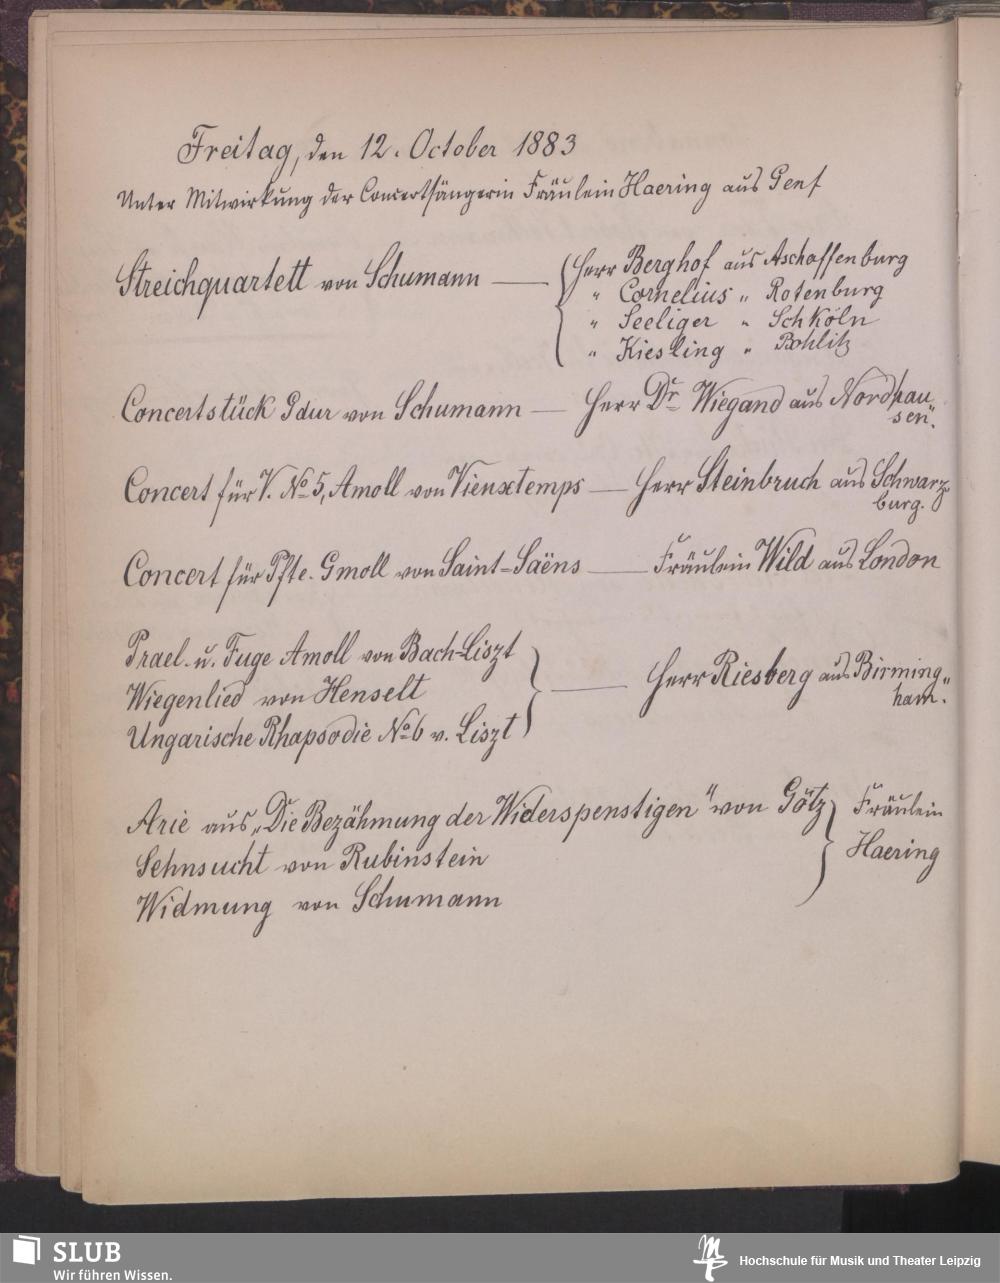 Freitag, den 12. October 1883
Unter Mitwirkung der Concertsängerin Fräulein Haering aus Genf
Streichquartett von Schumann — Herr Berghof aus Aschaffenburg
" Cornelius " Rotenburg
" Seeliger " Schköln
" Kiesling " Pohlitz
Concertstück Gdur von Schumann — Herr Dr Wiegand aus Nordhau
sen".
Concert für V. No 5, Amoll von Vieuxtemps — Herr Steinbruch aus Schwarz-
burg.
Concert für Pfte. Gmoll von Saint-Saëns — Fräulein Wild aus London
Prael. u. Fuge Amoll von Bach-Liszt
Wiegenlied von Henselt
Ungarische Rhapsodie No 6 v. Liszt
— Herr Riesberg aus Birming"
ham.
Arie aus „Die Bezähmung der Widerspenstigen" von Götz
Sehnsucht von Rubinstein
Widmung von Schumann
Fräulein
Haering
SLUB
Wir führen Wissen.
Hochschule für Musik und Theater Leipzig